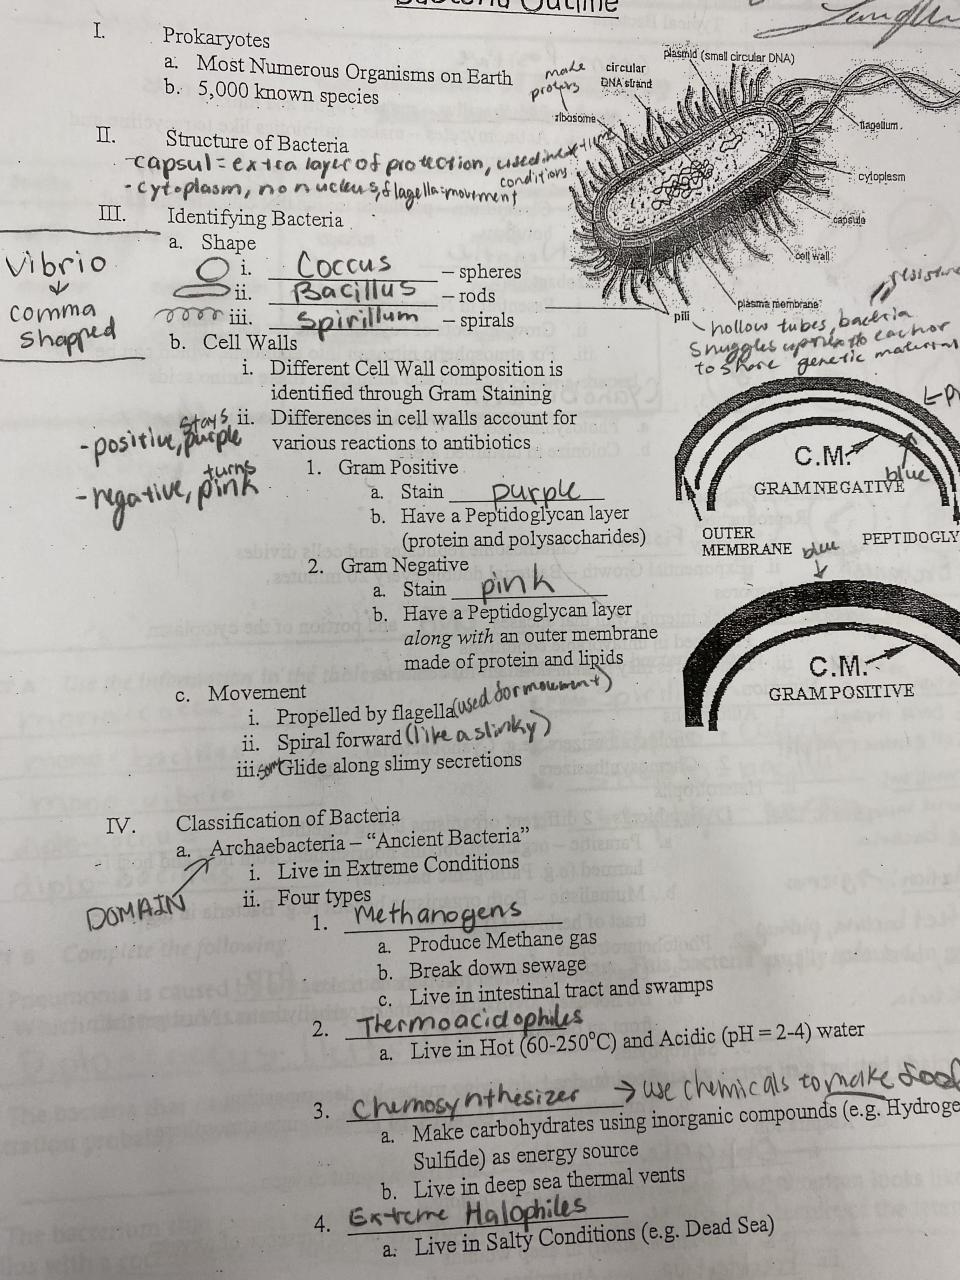 Bacteria Outline
I. Prokaryotes
a. Most Numerous Organisms on Earth
b. 5,000 known species
make
circular
DNA strand
plasmid (small circular DNA)
ribosome
flagellum
cytoplasm
capsule
cell wall
plasma membrane
pili
II. Structure of Bacteria
-capsul = extra layer of protection, used in extreme
conditions
-cytoplasm, no nucleus, flagella=movement
III. Identifying Bacteria
a. Shape
i. Coccus – spheres
ii. Bacillus – rods
iii. Spirillum – spirals
Vibrio
comma
shapped
hollow tubes, bacteria
snuggles up to each
to share genetic material
b. Cell Walls
i. Different Cell Wall composition is
identified through Gram Staining
ii. Differences in cell walls account for
various reactions to antibiotics
- positive, stays purple
- negative, turns pink
1. Gram Positive
a. Stain purple
b. Have a Peptidoglycan layer
(protein and polysaccharides)
2. Gram Negative
a. Stain pink
b. Have a Peptidoglycan layer
along with an outer membrane
made of protein and lipids
C.M.
blue
GRAM NEGATIVE
OUTER
MEMBRANE
PEPTIDOGLY
blue
C.M.
GRAM POSITIVE
c. Movement
i. Propelled by flagella (used for movement)
ii. Spiral forward (like a slinky)
iii. Glide along slimy secretions
IV. Classification of Bacteria
a. Archaebacteria – “Ancient Bacteria”
DOMAIN
i. Live in Extreme Conditions
ii. Four types
1. Methanogens
a. Produce Methane gas
b. Break down sewage
c. Live in intestinal tract and swamps
2. Thermoacidophiles
a. Live in Hot (60-250°C) and Acidic (pH = 2-4) water
3. Chemosynthesizer → use chemicals to make food
a. Make carbohydrates using inorganic compounds (e.g. Hydroge
Sulfide) as energy source
b. Live in deep sea thermal vents
4. Extreme Halophiles
a. Live in Salty Conditions (e.g. Dead Sea)